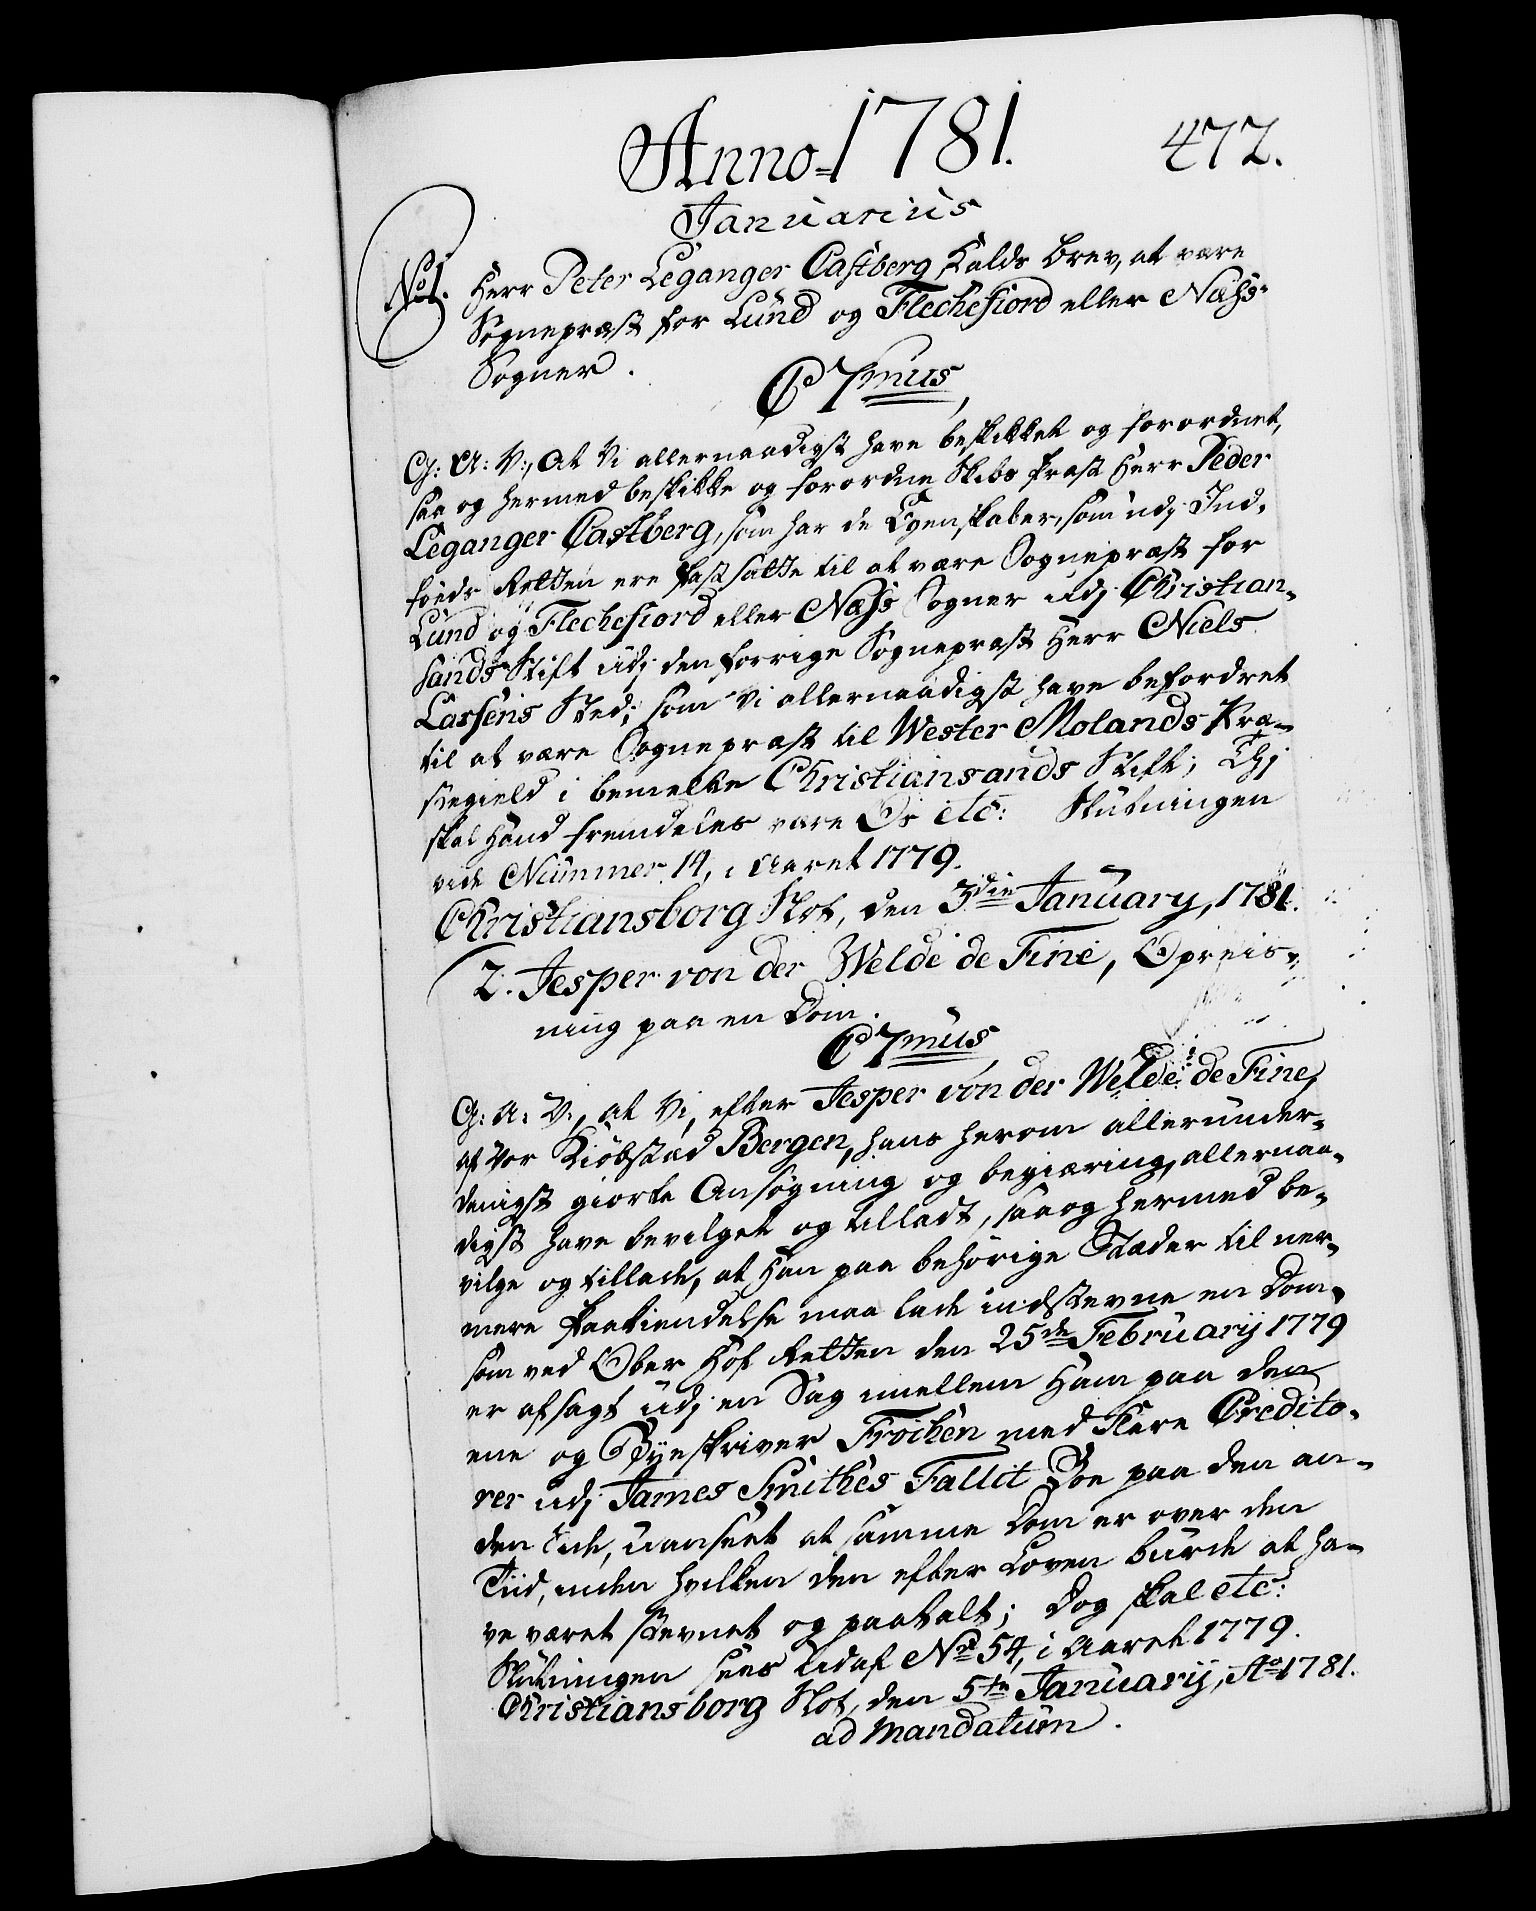 Anno 1781. 472.
Januarius
No 1. Herr Peter Leganger Castberg Kalds Brev, at være
Sognepræst for Lund og Flechefiord eller Næss
Sogner.
C 7mus
G: A: V:, At Vi allernaadigst have beskikket og forordnet,
saa og hermed beskikke og forordne Skibs Præst Herr Peder
Leganger Castberg, som har de Egenskaber, som udj Ind-
føeds Retten ere fastsatte til at være Sognepræst for
Lund og Flechefiord eller Næss Sogner udj Christian-
sands Stift udj den forrige Sognepræst Herr Niels
Lassens Sted; som Vi allernaadigst have befordret
til at være Sognepræst til Wester Molands Præ-
stegield i bemelte Christiansands Stift; Thj
skal Hand fremdeles være Os etc: Slutningen
vide Nummer 14, i Aaret 1779.
Christiansborg Slot, den 3die January, 1781.
2. Jesper von der Welde de Fine, Opreis-
ning paa en Dom.
C 7mus
G: A: V:, at Vi, efter Jesper von der Welde de Fine,
af Vor Kiøbstad Bergen, hans herom allerunder-
danigst giorte Ansøgning og begiæring, allernaa-
digst have bevilget og tilladt, saa og hermed be-
vilge og tillade, at Han paa behørige Stæder til ner-
mere Paakiendelse maa lade indstevne en Dom,
som ved Ober Hof Retten den 25de Februarij 1779
er afsagt udj en Sag imellem Ham paa den
ene og Byeskriver Frochen med Flere Credito-
rer udj James Smithes Fallit Boe paa den an-
den Side, uanseet at samme Dom er over den
Tiid, inden hvilken den efter Loven burde at ha-
ve været stevnet og paatalt; Dog skal etc:
Slutningen sees udaf No 54, i Aaret 1779.
Christiansborg Slot, den 5te Januarij, Ao 1781.
ad Mandatum.